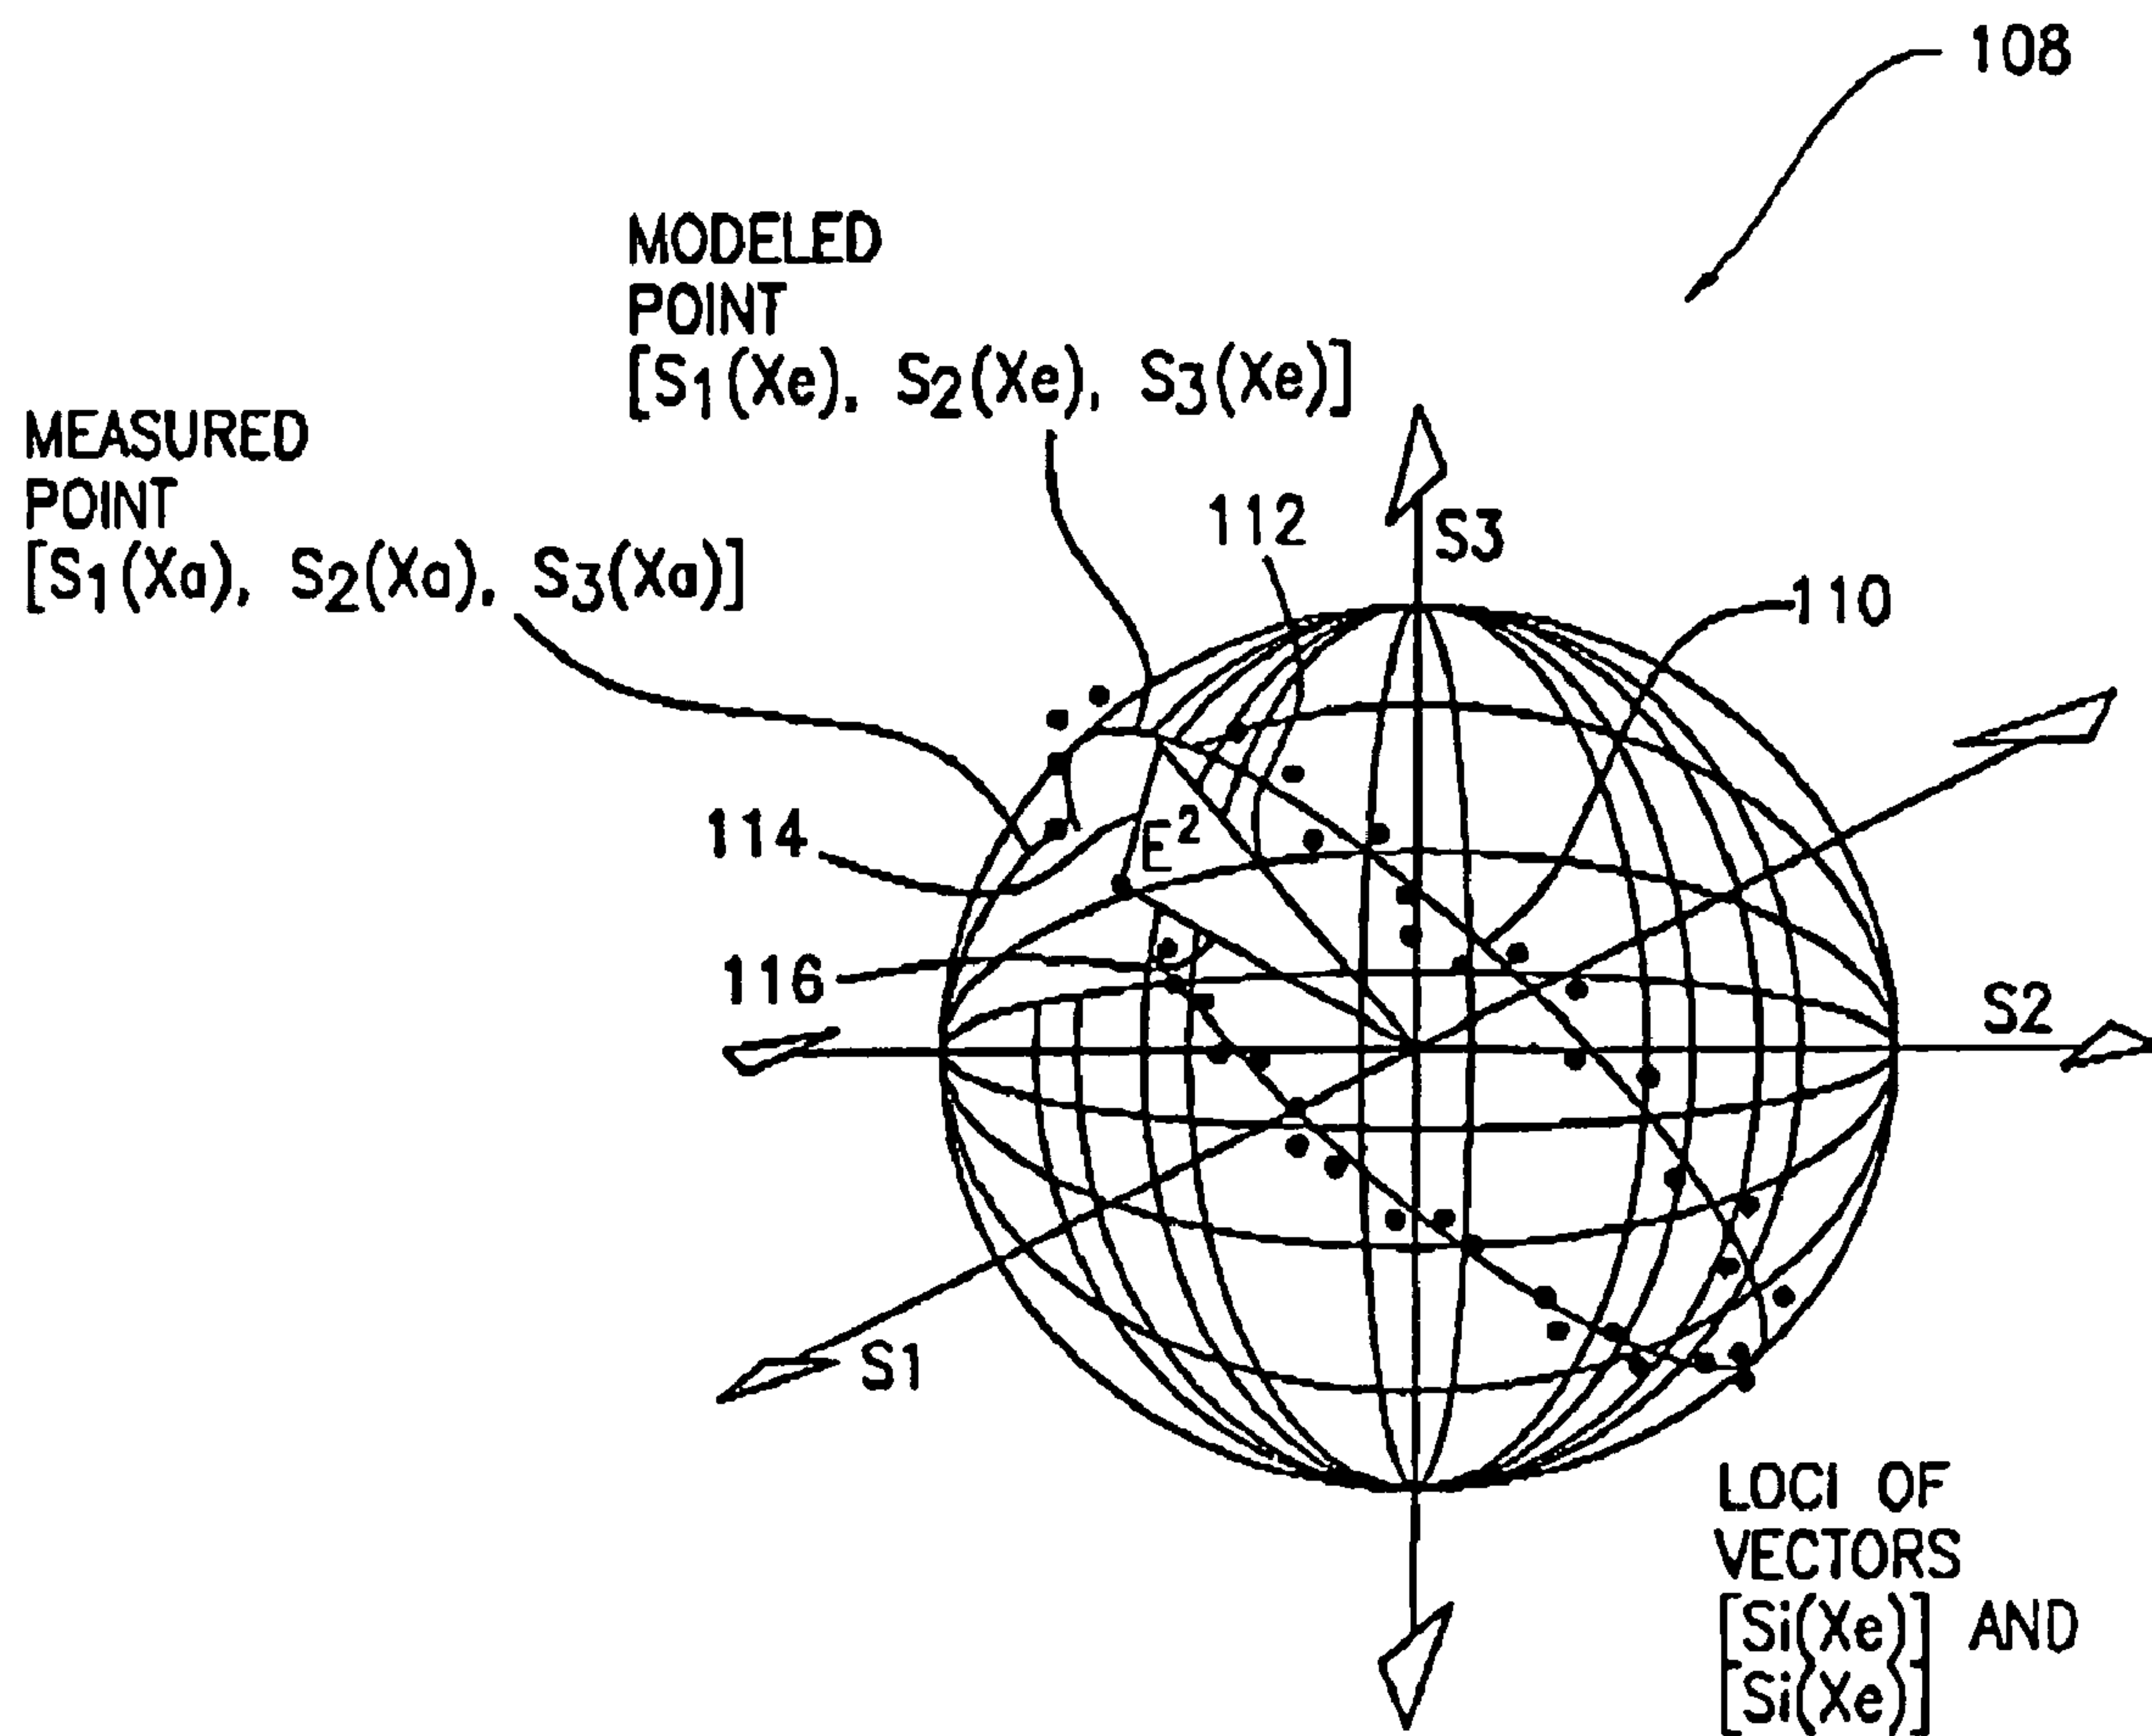 108
MODELED
POINT
[S1(Xe), S2(Xe), S3(Xe)]
MEASURED
POINT
[S1(Xa), S2(Xa), S3(Xa)]
112
S3
110
114
E²
116
S2
S1
LOCI OF
VECTORS
[Si(Xe)] AND
[Si(Xe)]